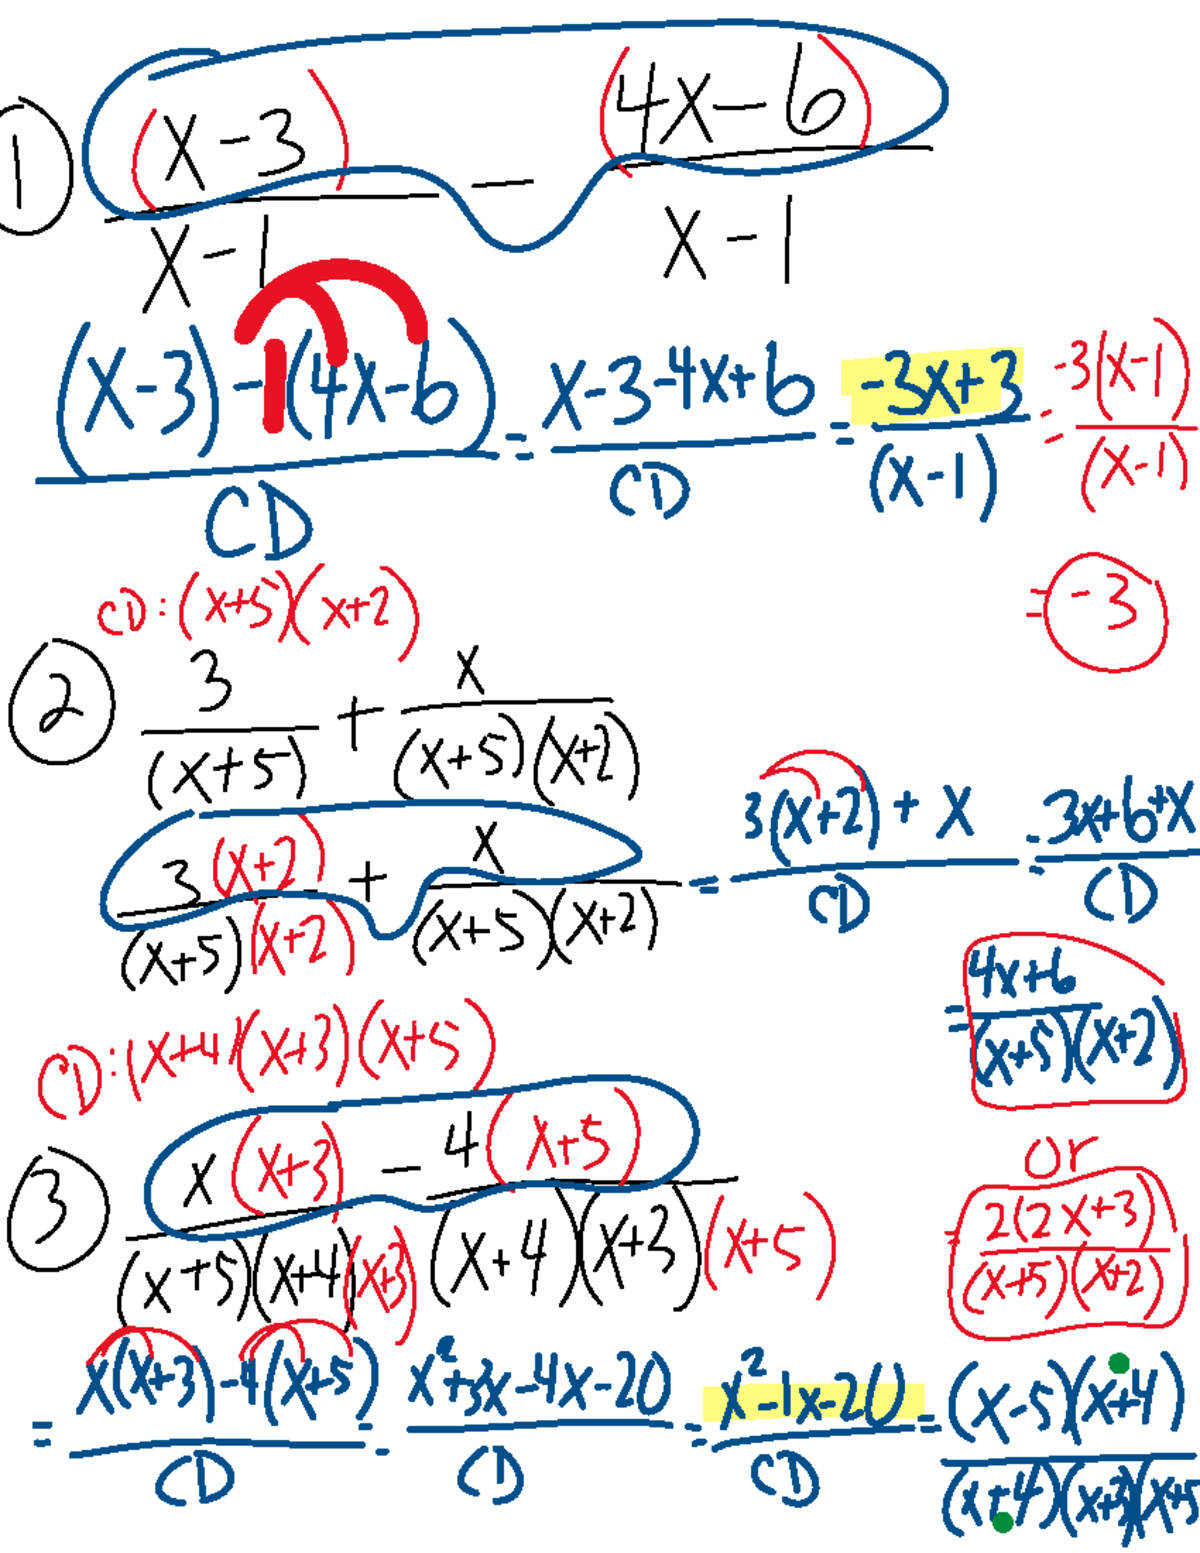 ① (x-3)/(x-1) - (4x-6)/(x-1)
((x-3) -1(4x-6))/CD = (x-3-4x+6)/CD = (-3x+3)/(x-1) = -3(x-1)/(x-1)
= -3
CD: (x+5)(x+2)
② 3/(x+5) + x/((x+5)(x+2))
3(x+2)/((x+5)(x+2)) + x/((x+5)(x+2)) = (3(x+2) + x)/CD = (3x+6+x)/CD
= (4x+6)/((x+5)(x+2))
or
= 2(2x+3)/((x+5)(x+2))
CD: (x+4)(x+3)(x+5)
③ x(x+3)/((x+5)(x+4)(x+3)) - 4(x+5)/((x+4)(x+3)(x+5))
= (x(x+3)-4(x+5))/CD = (x²+3x-4x-20)/CD = (x²-1x-20)/CD = (x-5)(x+4)/((x+4)(x+3)(x+5